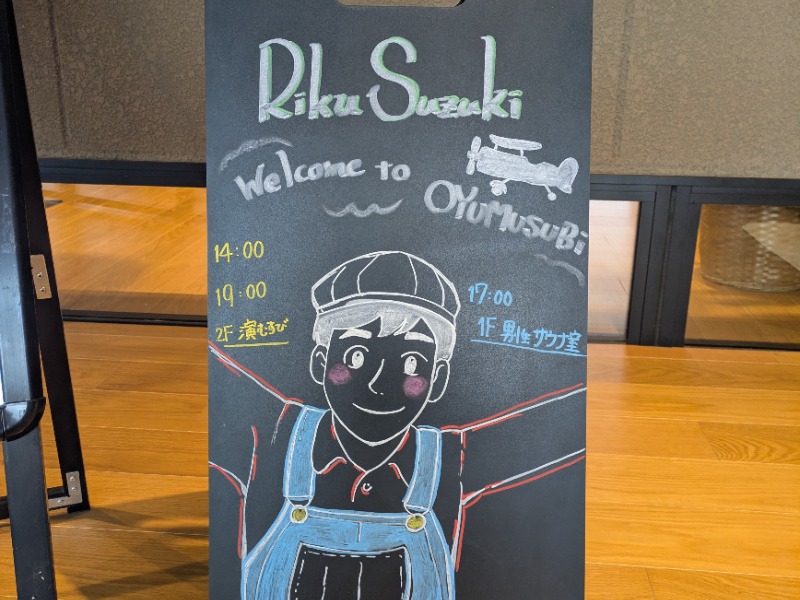 Riku Suzuki
Welcome to
OYUMUSUBi
14:00
19:00
2F 演むすび
17:00
1F 男性サウナ室